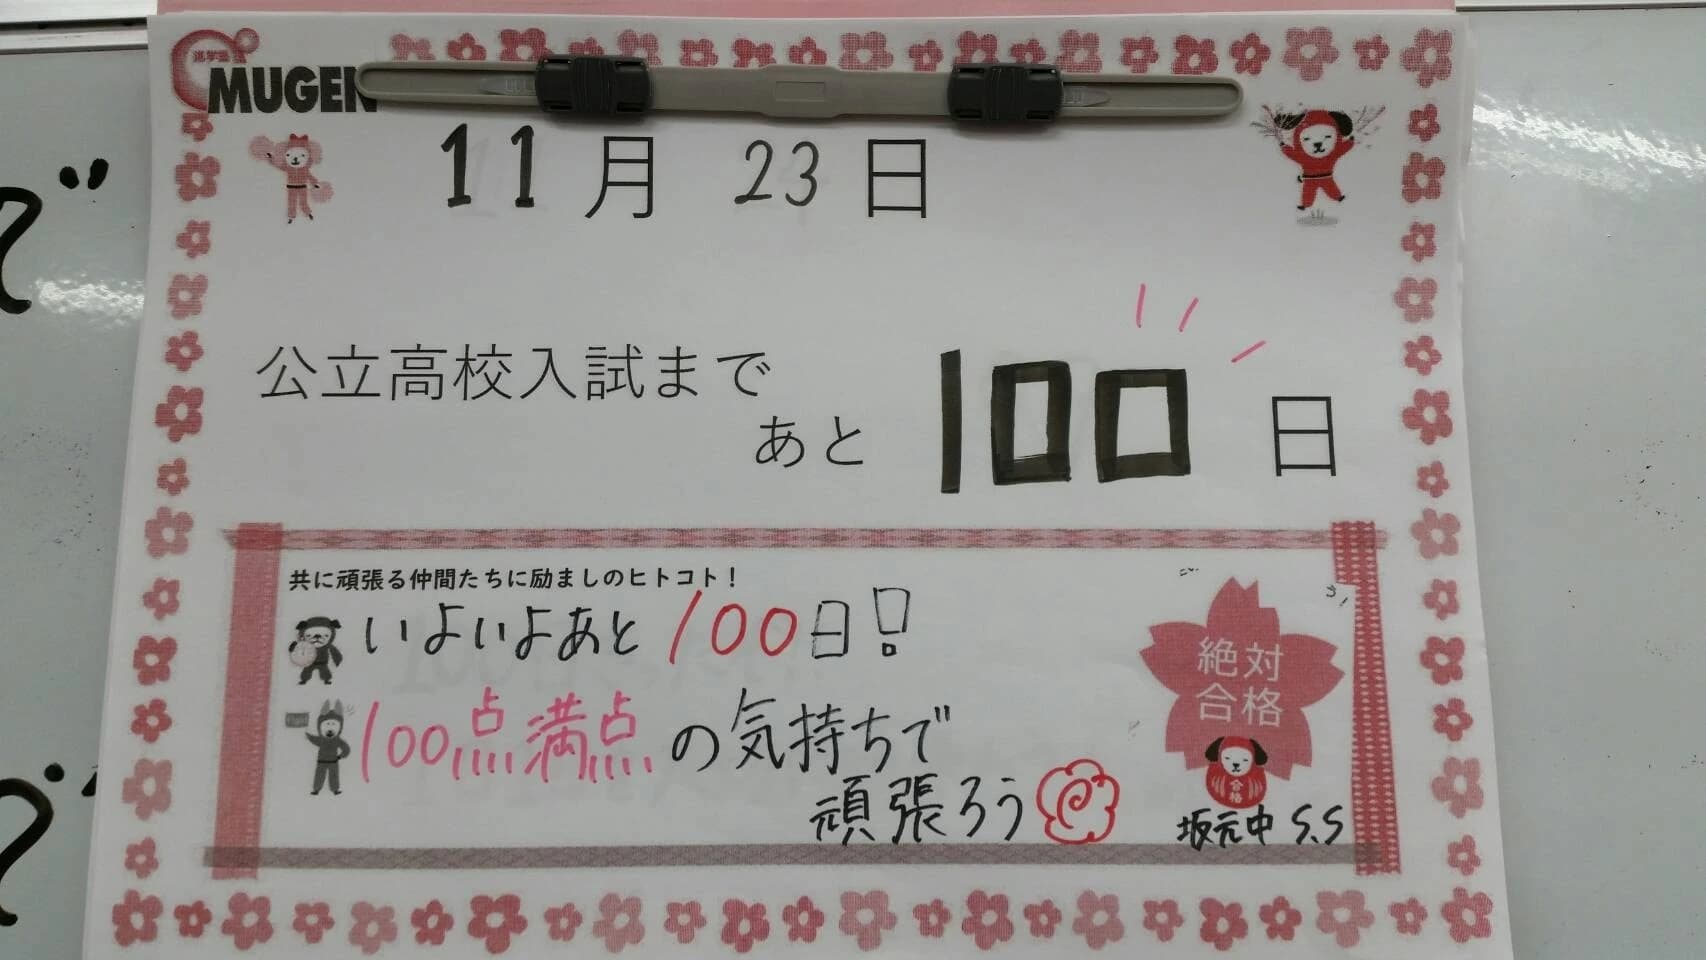 進学塾
MUGEN
11月 23日
公立高校入試まで
あと 100日
共に頑張る仲間たちに励ましのヒトコト！
いよいよあと100日!
100点満点の気持ちで
頑張ろう
絶対
合格
合格
坂元中 S.S